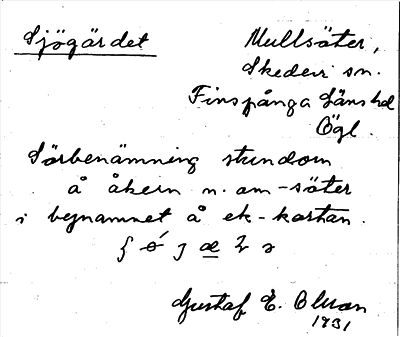 Sjögärdet
Mullsäter,
Skedevi sn.
Finspånga läns hd
Ögl.
Särbenämning stundom
å åkern n. om -säter
i bynamnet å ek-kartan.
Gustaf E. Olsson
1931